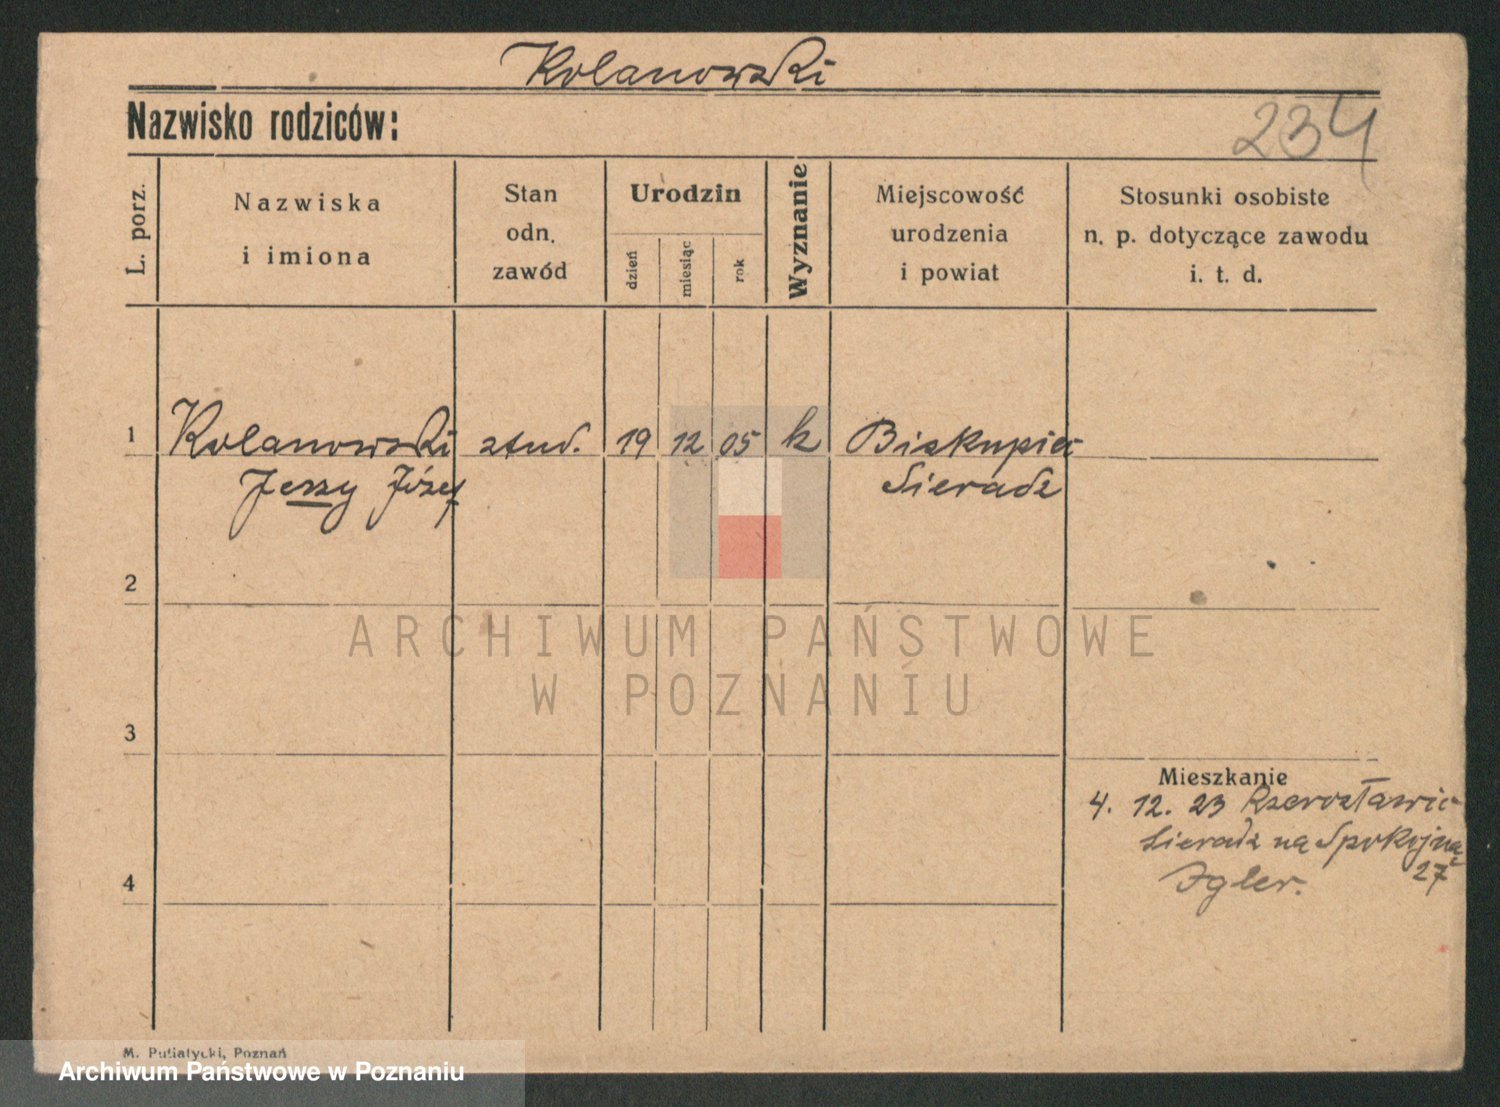 Kolanowski
Nazwisko rodziców:
234
L. porz.
Nazwiska
i imiona
Stan
odn.
zawód
Urodzin
dzień
miesiąc
rok
Wyznanie
Miejscowość
urodzenia
i powiat
Stosunki osobiste
n. p. dotyczące zawodu
i. t. d.
1 Kolanowski stud. 19 12 05 k Biskupice
Jerzy Józef Sieradz
2
ARCHIWUM PAŃSTWOWE
W POZNANIU
3
Mieszkanie
4. 12. 23
Sieradz na Spokojna
27
Igler.
4
M. Putiatycki, Poznań
Archiwum Państwowe w Poznaniu